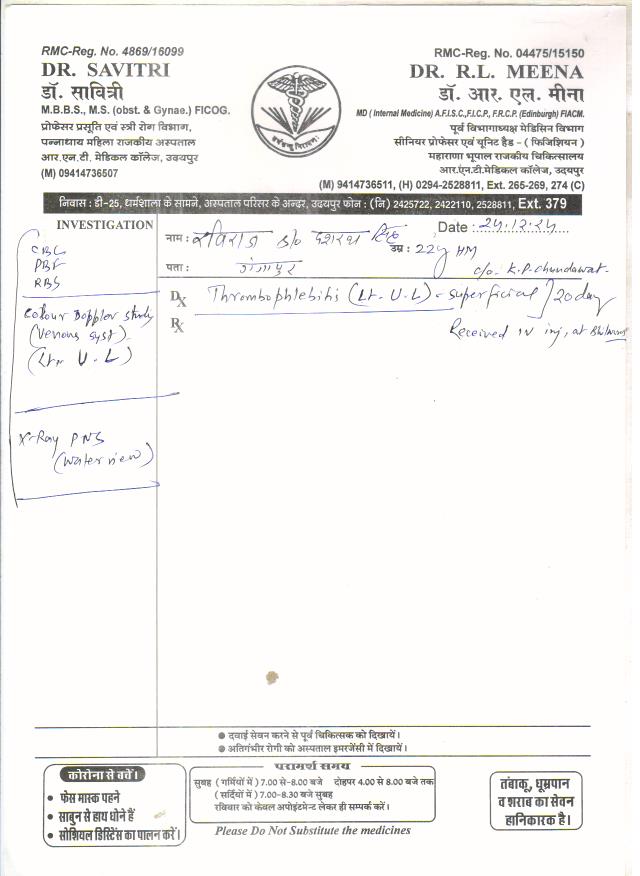 RMC-Reg. No. 4869/16099
DR. SAVITRI
डॉ. सावित्री
M.B.B.S., M.S. (obst. & Gynae.) FICOG.
प्रोफेसर प्रसूति एवं स्त्री रोग विभाग,
पन्नाधाय महिला राजकीय अस्पताल
आर.एन.टी. मेडिकल कॉलेज, उदयपुर
(M) 09414736507
RMC-Reg. No. 04475/15150
DR. R.L. MEENA
डॉ. आर. एल. मीना
MD ( Internal Medicine) A.F.I.S.C.,F.I.C.P., F.R.C.P. (Edinburgh) FIACM.
पूर्व विभागाध्यक्ष मेडिसिन विभाग
सीनियर प्रोफेसर एवं यूनिट हैड - ( फिजिशियन )
महाराणा भूपाल राजकीय चिकित्सालय
आर.एन.टी.मेडिकल कॉलेज, उदयपुर
(M) 9414736511, (H) 0294-2528811, Ext. 265-269, 274 (C)
निवास : डी-25, धर्मशाला के सामने, अस्पताल परिसर के अन्दर, उदयपुर फोन : (नि) 2425722, 2422110, 2528811, Ext. 379
INVESTIGATION
CBC
PBF
RBS
Colour Doppler study
(Venous syst).
(Lt. U.L)
X-Ray PNS
(water view)
Date : 24.12.24
नाम : रविराज S/o दशरथ सिंह
उम्र : 22y HM
पता : गंगापुर
c/o. K.P. chundawat.
Dx Thrombophlebiti (Lt. U.L) - superficial ] 20 day
Rx
Received IV inj, at
● दवाई सेवन करने से पूर्व चिकित्सक को दिखायें।
● अतिगंभीर रोगी को अस्पताल इमरजेंसी में दिखायें।
कोरोना से बचें।
• फेस मास्क पहने
• साबुन से हाथ धोने हैं
• सोशियल डिस्टेंस का पालन करें।
परामर्श समय
सुबह ( गर्मियों में ) 7.00 से-8.00 बजे दोहपर 4.00 से 8.00 बजे तक
(सर्दियों में ) 7.00-8.30 बजे सुबह
रविवार को केवल अपोइंटमेन्ट लेकर ही सम्पर्क करें।
Please Do Not Substitute the medicines
तंबाकू, धूम्रपान
व शराब का सेवन
हानिकारक है।